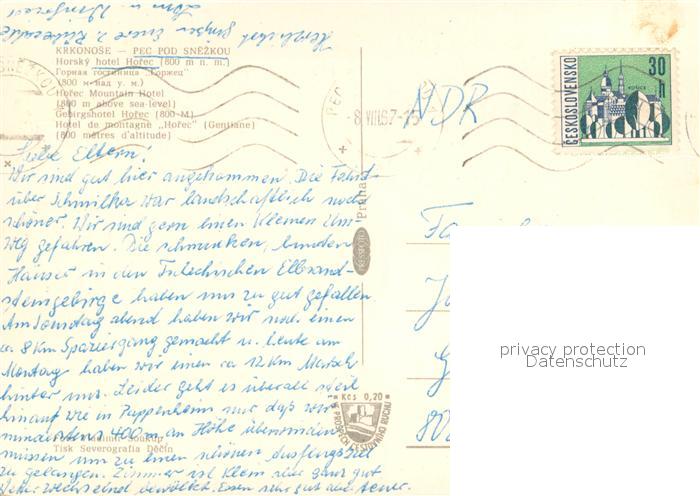 KRKONOŠE - PEC POD SNĚŽKOU
Horský hotel Hořec (800 m n. m.)
Горная гостиница „Горжец“
(800 м над у. м.)
Hořec Mountain Hotel
(800 m above sea-level)
Gebirgshotel Hořec (800 M)
Hotel de montagne „Hořec“ (Gentiane)
(800 mètres d'altitude)
NDR
ČESKOSLOVENSKO
30 h
Liebe Eltern!
Wir sind gut hier angekommen. Die Fahrt
über Schmilka war landschaftlich noch
schöner. Wir sind gern einen kleinen Um-
weg gefahren. Die schmucken, bunten
Häuser in den Tschechischen Elbsand-
steingebirge haben uns zu gut gefallen
Am Sonntag abend haben wir noch einen
ca. 8 km Spaziergang gemacht u. heute am
Montag haben wir einen ca 12 km Marsch
hinter uns. Leider geht es überall steil
hinauf wie in Pappenheim nur daß wir
mindestens 400 m an Höhe überwinden
müssen um zu einen schönen Ausflugsziel
zu gelangen. Zimmer ist klein aber ganz gut
Wetter wechselnd bewölkt. Essen sehr gut aber teuer.
Tisk Severografia Děčín
Kčs 0,20
VE PROSPĚCH CESTOVNÍHO RUCHU
Praha
privacy protection
Datenschutz